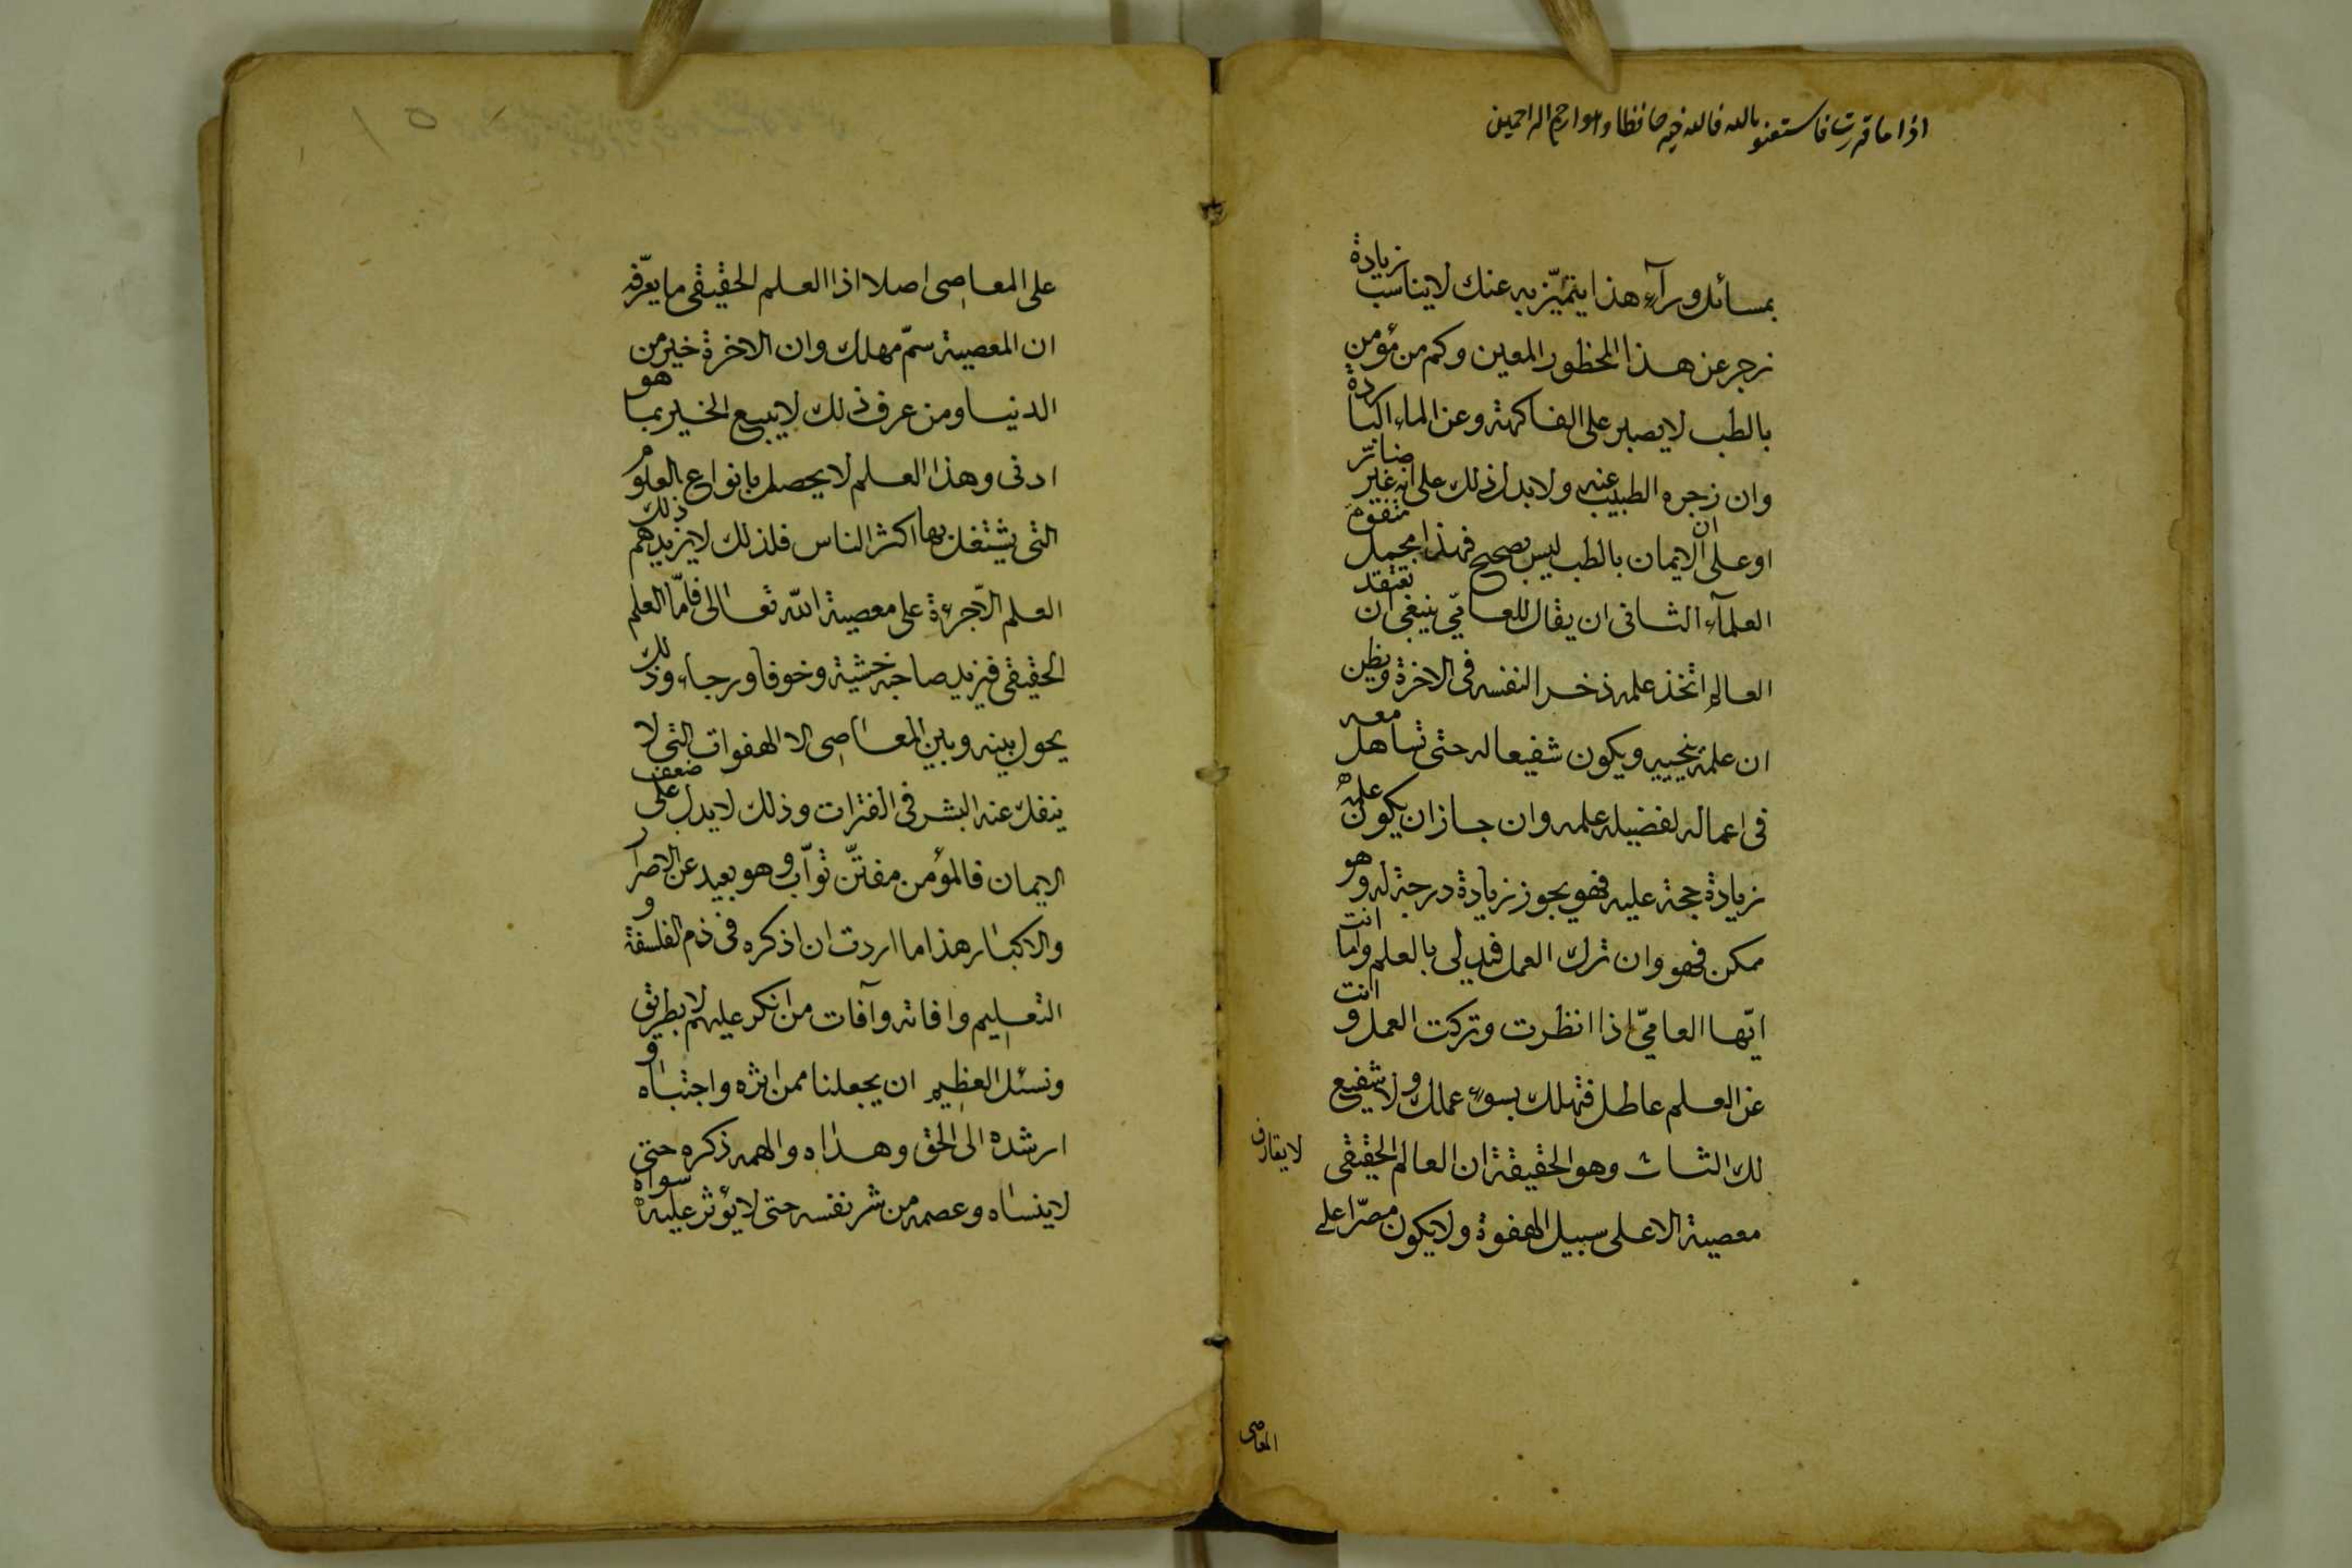 اذا ما قرت فاستعنو بالله فالله خير حافظا وهو ارحم الراحمين
بمسائل ورآء هذا يتميّز به عنك لا يناسب زيادة
زجر عن هذا المحظور المعين وكم من مؤمن
بالطب لا يصبر على الفاكهة وعن الماء الباردة
وان زجره الطبيب عنه ولا يدل ذلك على انه غير ضائر
او على ان الايمان بالطب ليس بصحيح فهذا مجمل
العلمآء الثانى ان يقال للعامّي ينبغى ان تعتقد
العالم اتخذ علمه ذخرا لنفسه فى الاخرة ويظن
ان علمه ينجيه ويكون شفيعا له حتى تساهل معه
فى اعماله لفضيلة علمه وان جاز ان يكون علمه
زيادة حجة عليه فهو يجوز زيادة درجة له وهو
ممكن فهو وان ترك العمل فيدلى بالعلم واما انت
ايّها العاميّ اذا انظرت وتركت العمل و انت
عن العلم عاطل فتهلك بسوء عملك ولا شفيع
لك الثالث وهو الحقيقة ان العالم الحقيقى
لا يقارف
معصية الا على سبيل الهفوة ولا يكون مصرّا على
المعاصى
على المعاصى اصلا اذا العلم الحقيقى ما يعرّفه
ان المعصية سمّ مهلك وان الاخرة خير من
الدنيا ومن عرف ذلك لا يبيع الخير بما هو
ادنى وهذا العلم لا يحصل بانواع العلوم
التى يشتغل بها اكثر الناس فلذلك لا يزيدهم ذلك
العلم الّا جرءة على معصية الله تعالى فامّا العلم
الحقيقى فيزيد صاحبه خشية وخوفا ورجاء وذلك
يحول بينه وبين المعاصى الا الهفوات التى لا
ينفك عنه البشر فى الفترات وذلك لا يدل على ضعف
الايمان فالمؤمن مفتّن توّاب وهو بعيد عن الاصرار
والاكبار هذا ما اردت ان اذكره فى ذم الفلسفة و
التعليم وافاته وآفات من انكر عليهم لا بطريق
ونسئل العظيم ان يجعلنا ممن اثره واجتباه و
ارشده الى الحق وهداه والهمه ذكره حتى
لا ينساه وعصمه من شر نفسه حتى لا يؤثر عليه سواه